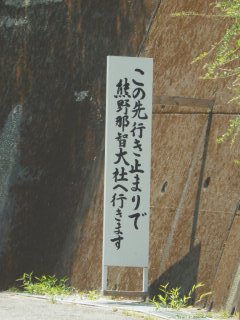 この先行き止まりで
熊野那智大社へ行きます